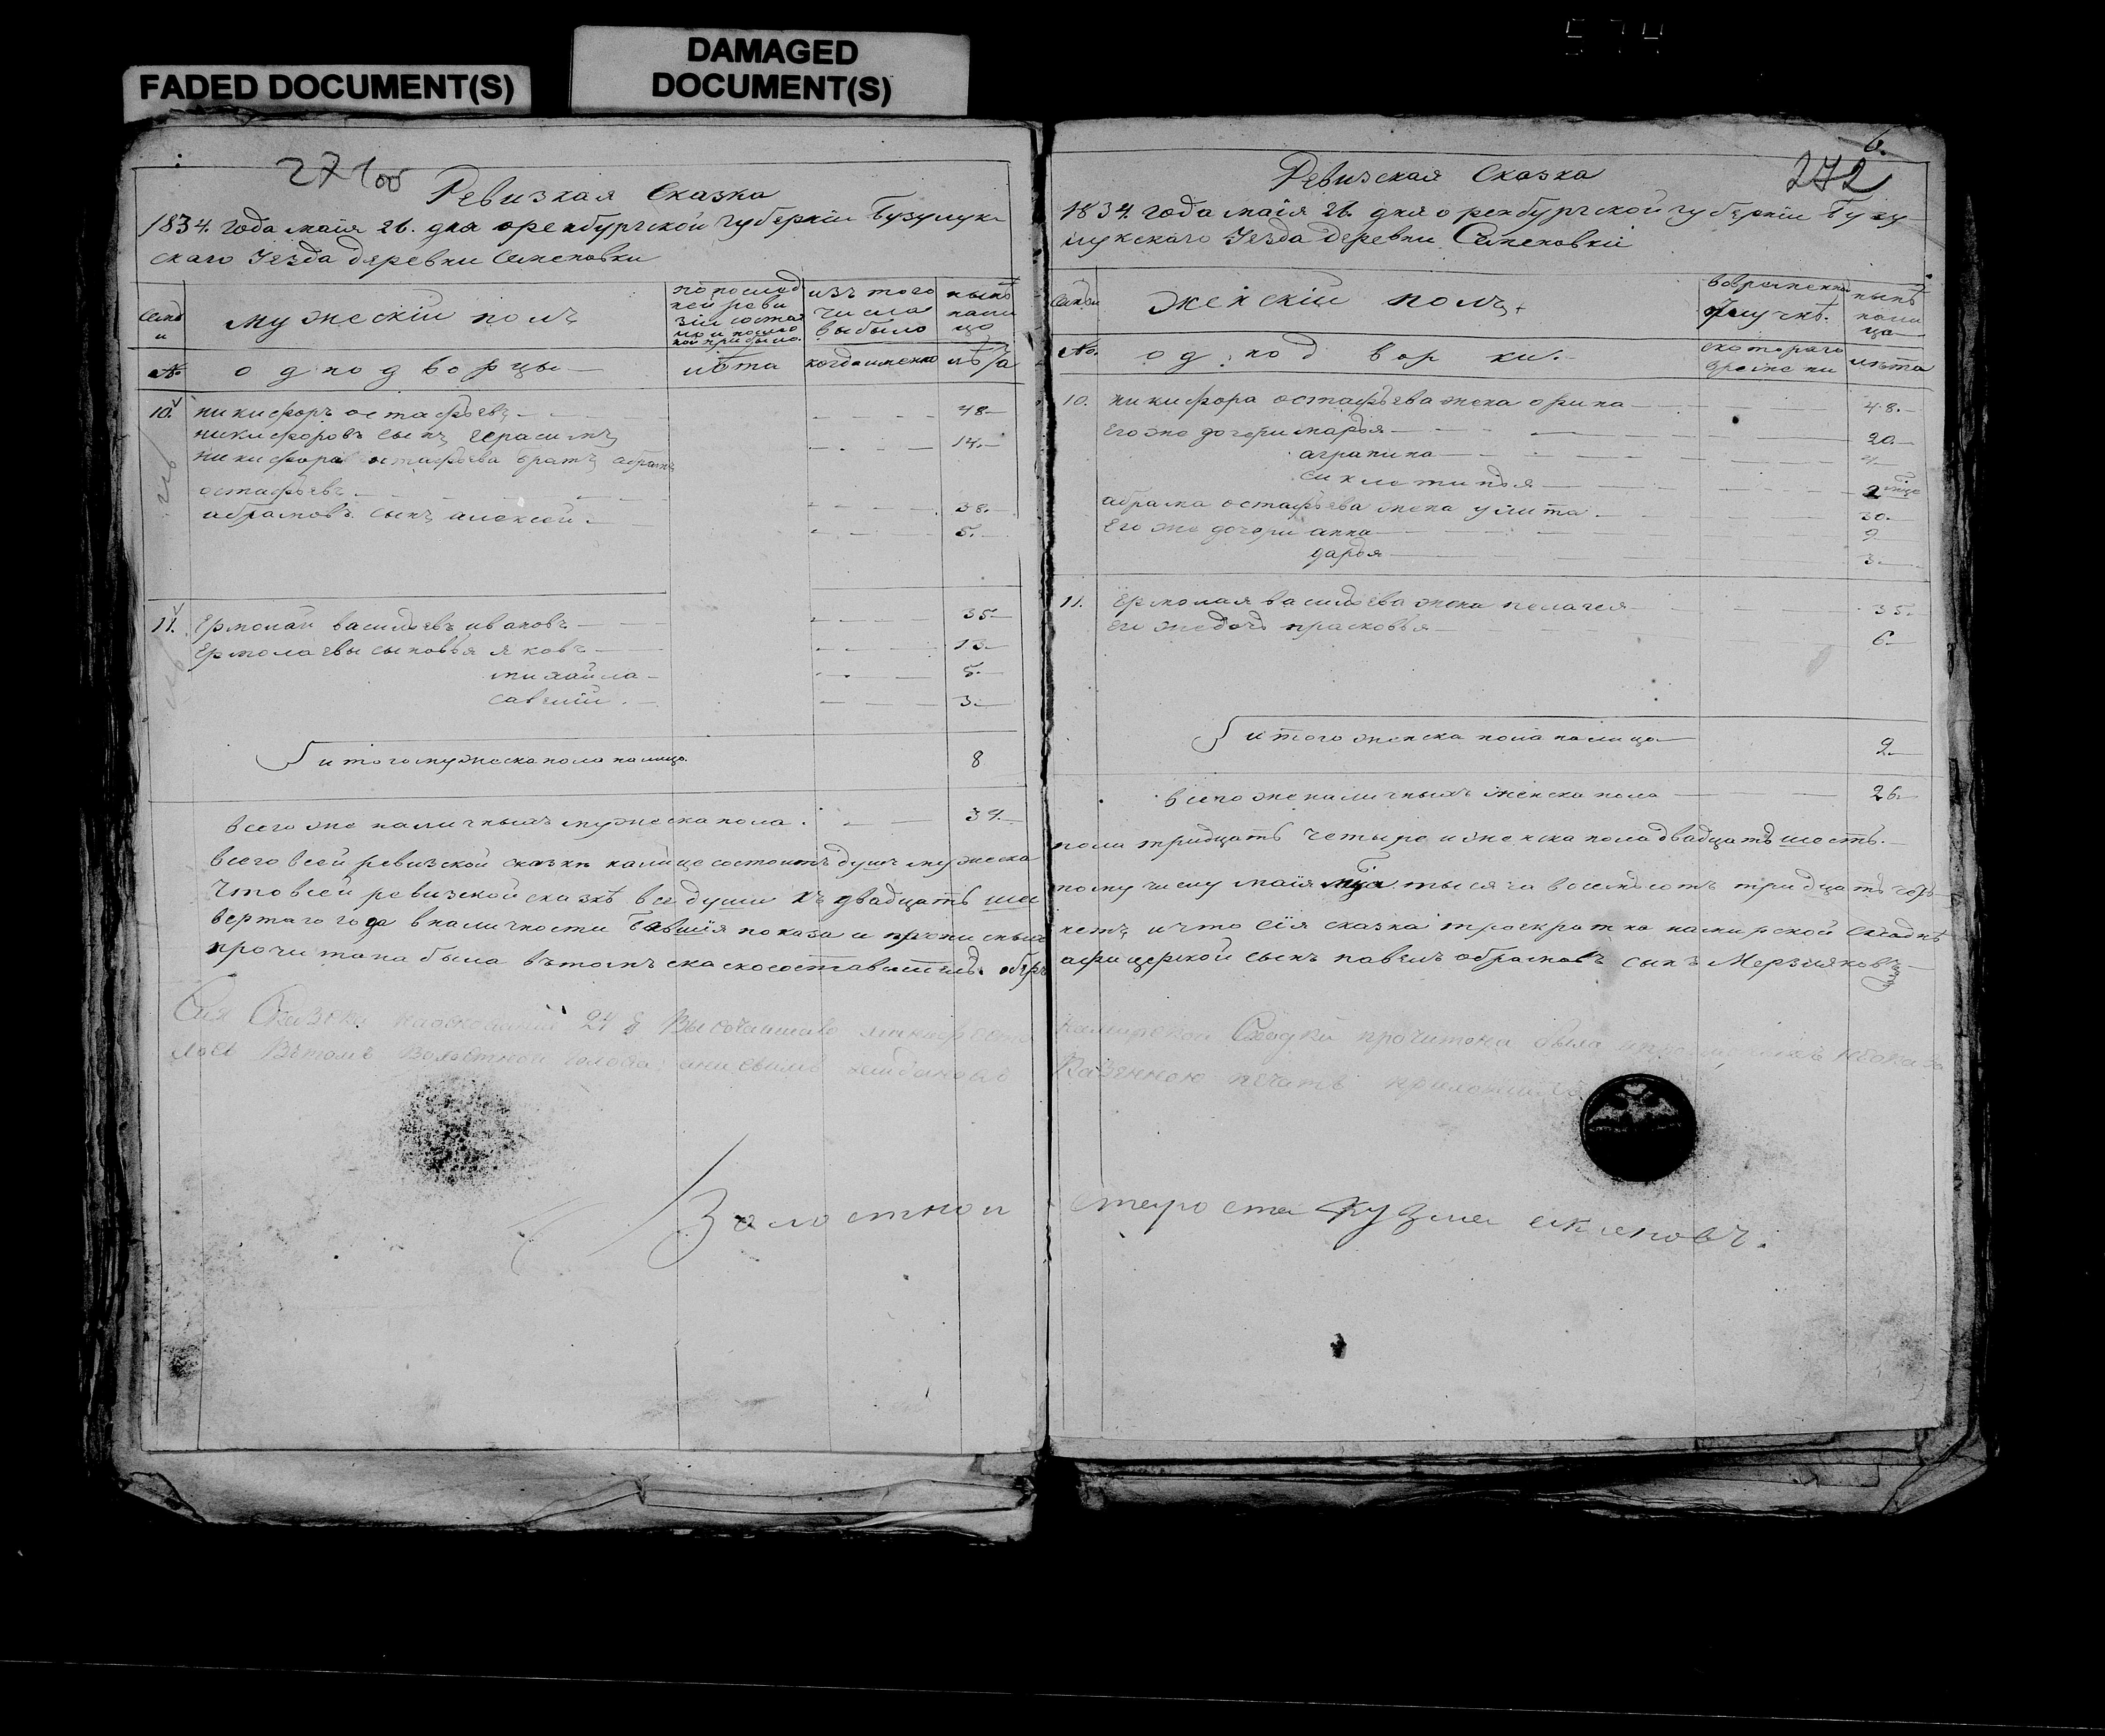 574
FADED DOCUMENT(S)
DAMAGED
DOCUMENT(S)
271 об
Ревизкая Сказка
1834. года майя 26. дня оренбургской губернiи Бузулук
скаго Уезда деревни Семеновки
Семьи
мужескiй полъ
по послед
ней реви
зiи состо
яло и после
изъ того
числа
выбыло
ныне
нали
цо
№
однодворцы
лѣта
когда именно
лѣта
10. никифоръ остафьевъ 48
никифоровъ сынъ герасимъ 14
никифора остафьева братъ абрамъ
остафьевъ 38
абрамовъ сынъ алексей 5
11. Ермолай васильевъ ивановъ 35
Ермолаевы сыновья яковъ 13
михайла 5
савелiй 3
итого мужеска пола налицо 8
всего же наличныхъ мужеска пола 34
всего всей ревизской сказки налице состоитъ душъ мужеска
что всей ревизской сказкѣ все души къ двадцать шес
вертаго года вналичности бывшiя показа и
прочитана была вътомъ скаскосоставитель обер
Сия Сказка на основании 24 § Высочайшаго манифеста
Вътомъ Волостной голова
Волостной
6.
272
Ревизская Сказка
1834. года майя 26. дня оренбургской губернiи Бузу
лукскаго Уезда деревни Семеновкi
Семьи
женскiй полъ
вовременной
отлучкѣ.
нынѣ
нали
цо
№
однодворки.
скотораго
времени
лѣта
10. никифора остафьева жена орина 48.
Его же дочери марья 20
аграпина 4
сиклетинья 2 мцо
абрама остафьева жена улита 30
Его же дочери анна 9
дарья 3
11. Ермолая васильева жена пелагея 35
Его же дочь прасковья 6
итого женска пола налицо 9
всего же наличныхъ женска пола 26
пола тридцать четыре и женска пола двадцать шесть.
тому числу майя мца тысяча восемьсотъ тридцать чет
нетъ и что сiя сказка троекратно на мирской сходкѣ
афицерской сынъ павелъ абрамовъ сынъ Мерзляковъ
на мирской Сходки прочитона была
Казенною печать приложилъ
староста кузма